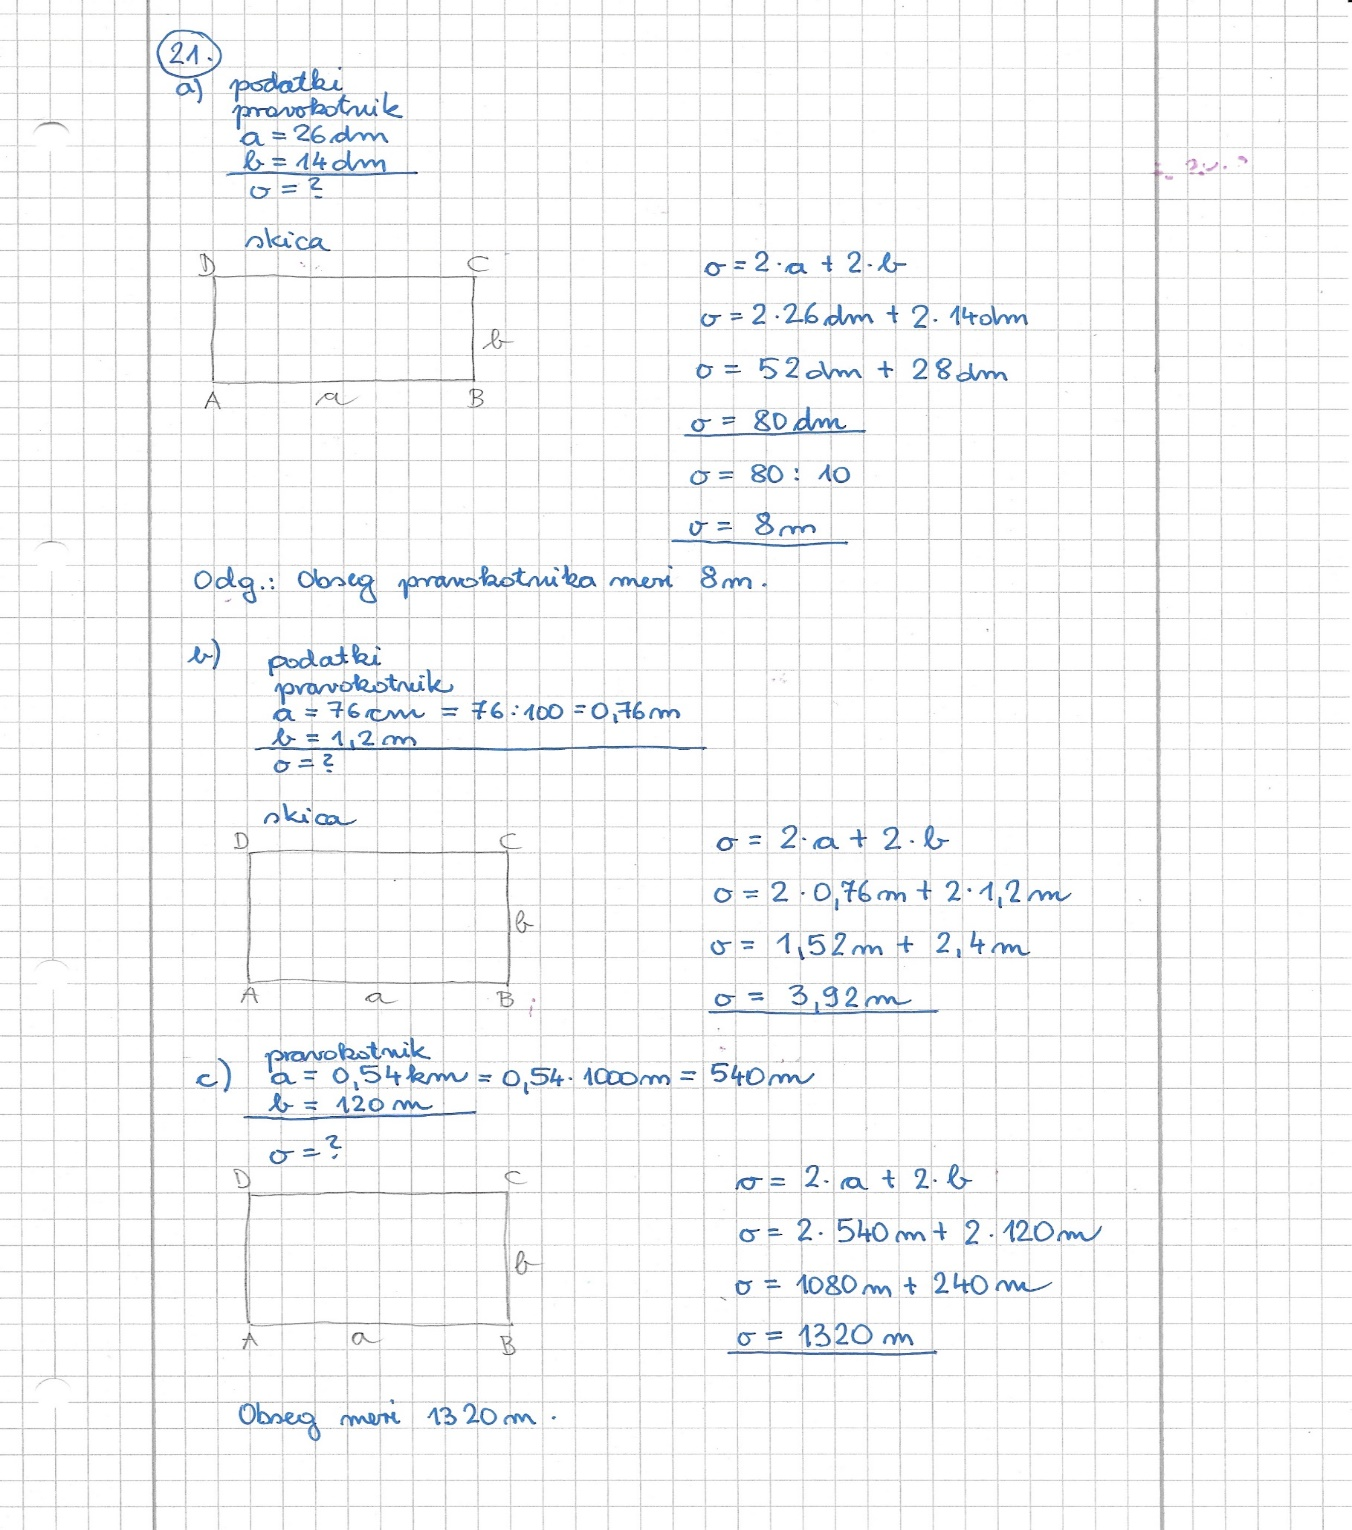 21.
a) podatki
pravokotnik
a = 26 dm
b = 14 dm
o = ?
skica
D C
b
A a B
o = 2·a + 2·b
o = 2·26 dm + 2·14 dm
o = 52 dm + 28 dm
o = 80 dm
o = 80 : 10
o = 8 m
Odg.: Obseg pravokotnika meri 8 m.
b) podatki
pravokotnik
a = 76 cm = 76 : 100 = 0,76 m
b = 1,2 m
o = ?
skica
D C
b
A a B
o = 2·a + 2·b
o = 2·0,76 m + 2·1,2 m
o = 1,52 m + 2,4 m
o = 3,92 m
pravokotnik
c) a = 0,54 km = 0,54·1000 m = 540 m
b = 120 m
o = ?
D C
b
A a B
o = 2·a + 2·b
o = 2·540 m + 2·120 m
o = 1080 m + 240 m
o = 1320 m
Obseg meri 1320 m.